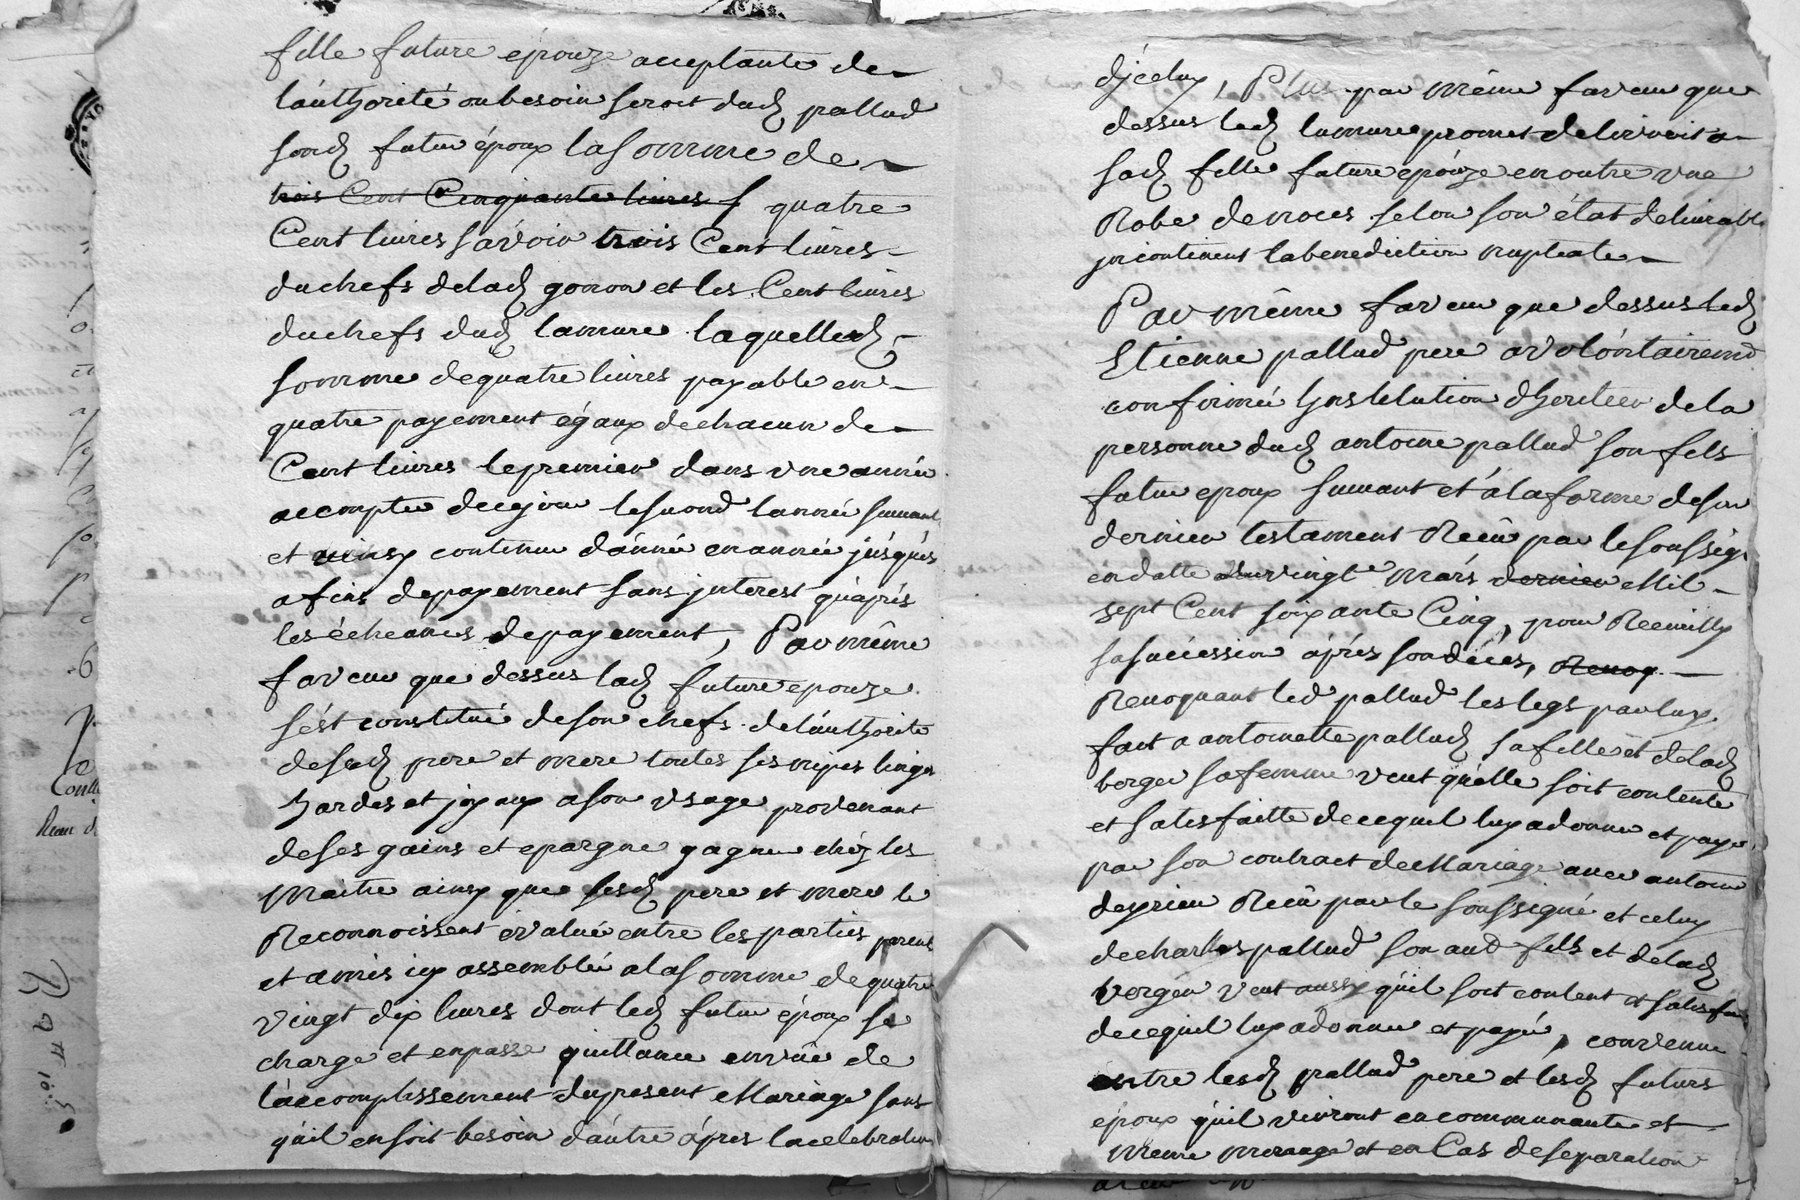 fille future épouze acceptante de
l'authorité ou besoin seroit dud pallud
sond futur époux la somme de
trois Cent Cinquante livres f quatre
Cent livres sávoir trois Cent livres
du chefs de lad gonon et les Cent livres
du chefs dud lamure laquelled
somme de quatre livres payable en
quatre payement égaux de chacun de
Cent livres le premier dans une année
a compter de ce jour le second l'année suivante
et ainsy continuer d'année en année jusques
a fins de payement sans jnterest qu'aprés
les écheances de payement, Par même
faveur que dessus lad future epouze
s'ést constitué de son chefs de l'authorité
de sesd pere et mere toutes ses nipes linges
hardes et joyaux a son usage provenant
de ses gains et epargne gagné chéz les
maitre ainsy que sesd pere et mere le
Reconnoissent évalué entre les parties parens
et amis icy assemblée a la somme de quatre
vingt dix livres dont led futur époux se
charge et en passe quittance en vûe de
l'accomplissement du present Mariage sans
qu'il en soit besoin d'autre aprés la celebration
djceluy, Plus par même faveur que
dessus led lamure promet de livrer a
sad fille future epouze en outre une
Robe de noces selon son état delivrable
jncontinent la benediction nuptiale
Par même faveur que dessus led
Etienne pallud pere a volontairement
confirmé l'jnstitution d'heritier de la
personne dud antoine pallud son fils
futur epoux suivant et á la forme de son
dernier testament Recû par le soussigné
en datte du vingt mars dernier Mil
sept Cent soixante Cinq, pour Recuillir
sa succession aprés son décés, Revoq
Revoquant led pallud les legs par luy
fait a antoinette pallud sa fille et de lad
berger sa femme veut qu'elle soit contente
et satisfaitte de ce qu'il luy a donné et payé
par son contract de Mariage avec antoine
deprieu Recû par le soussigné et celuy
de charles pallud son aud fils et de lad
berger veut aussy qu'il soit content et satisfait
de ce qu'il luy a donné et payé, convenu
entre lesd pallud pere et lesd futurs
époux qu'il vivront en communauté et
meme menage et en Cas de separation